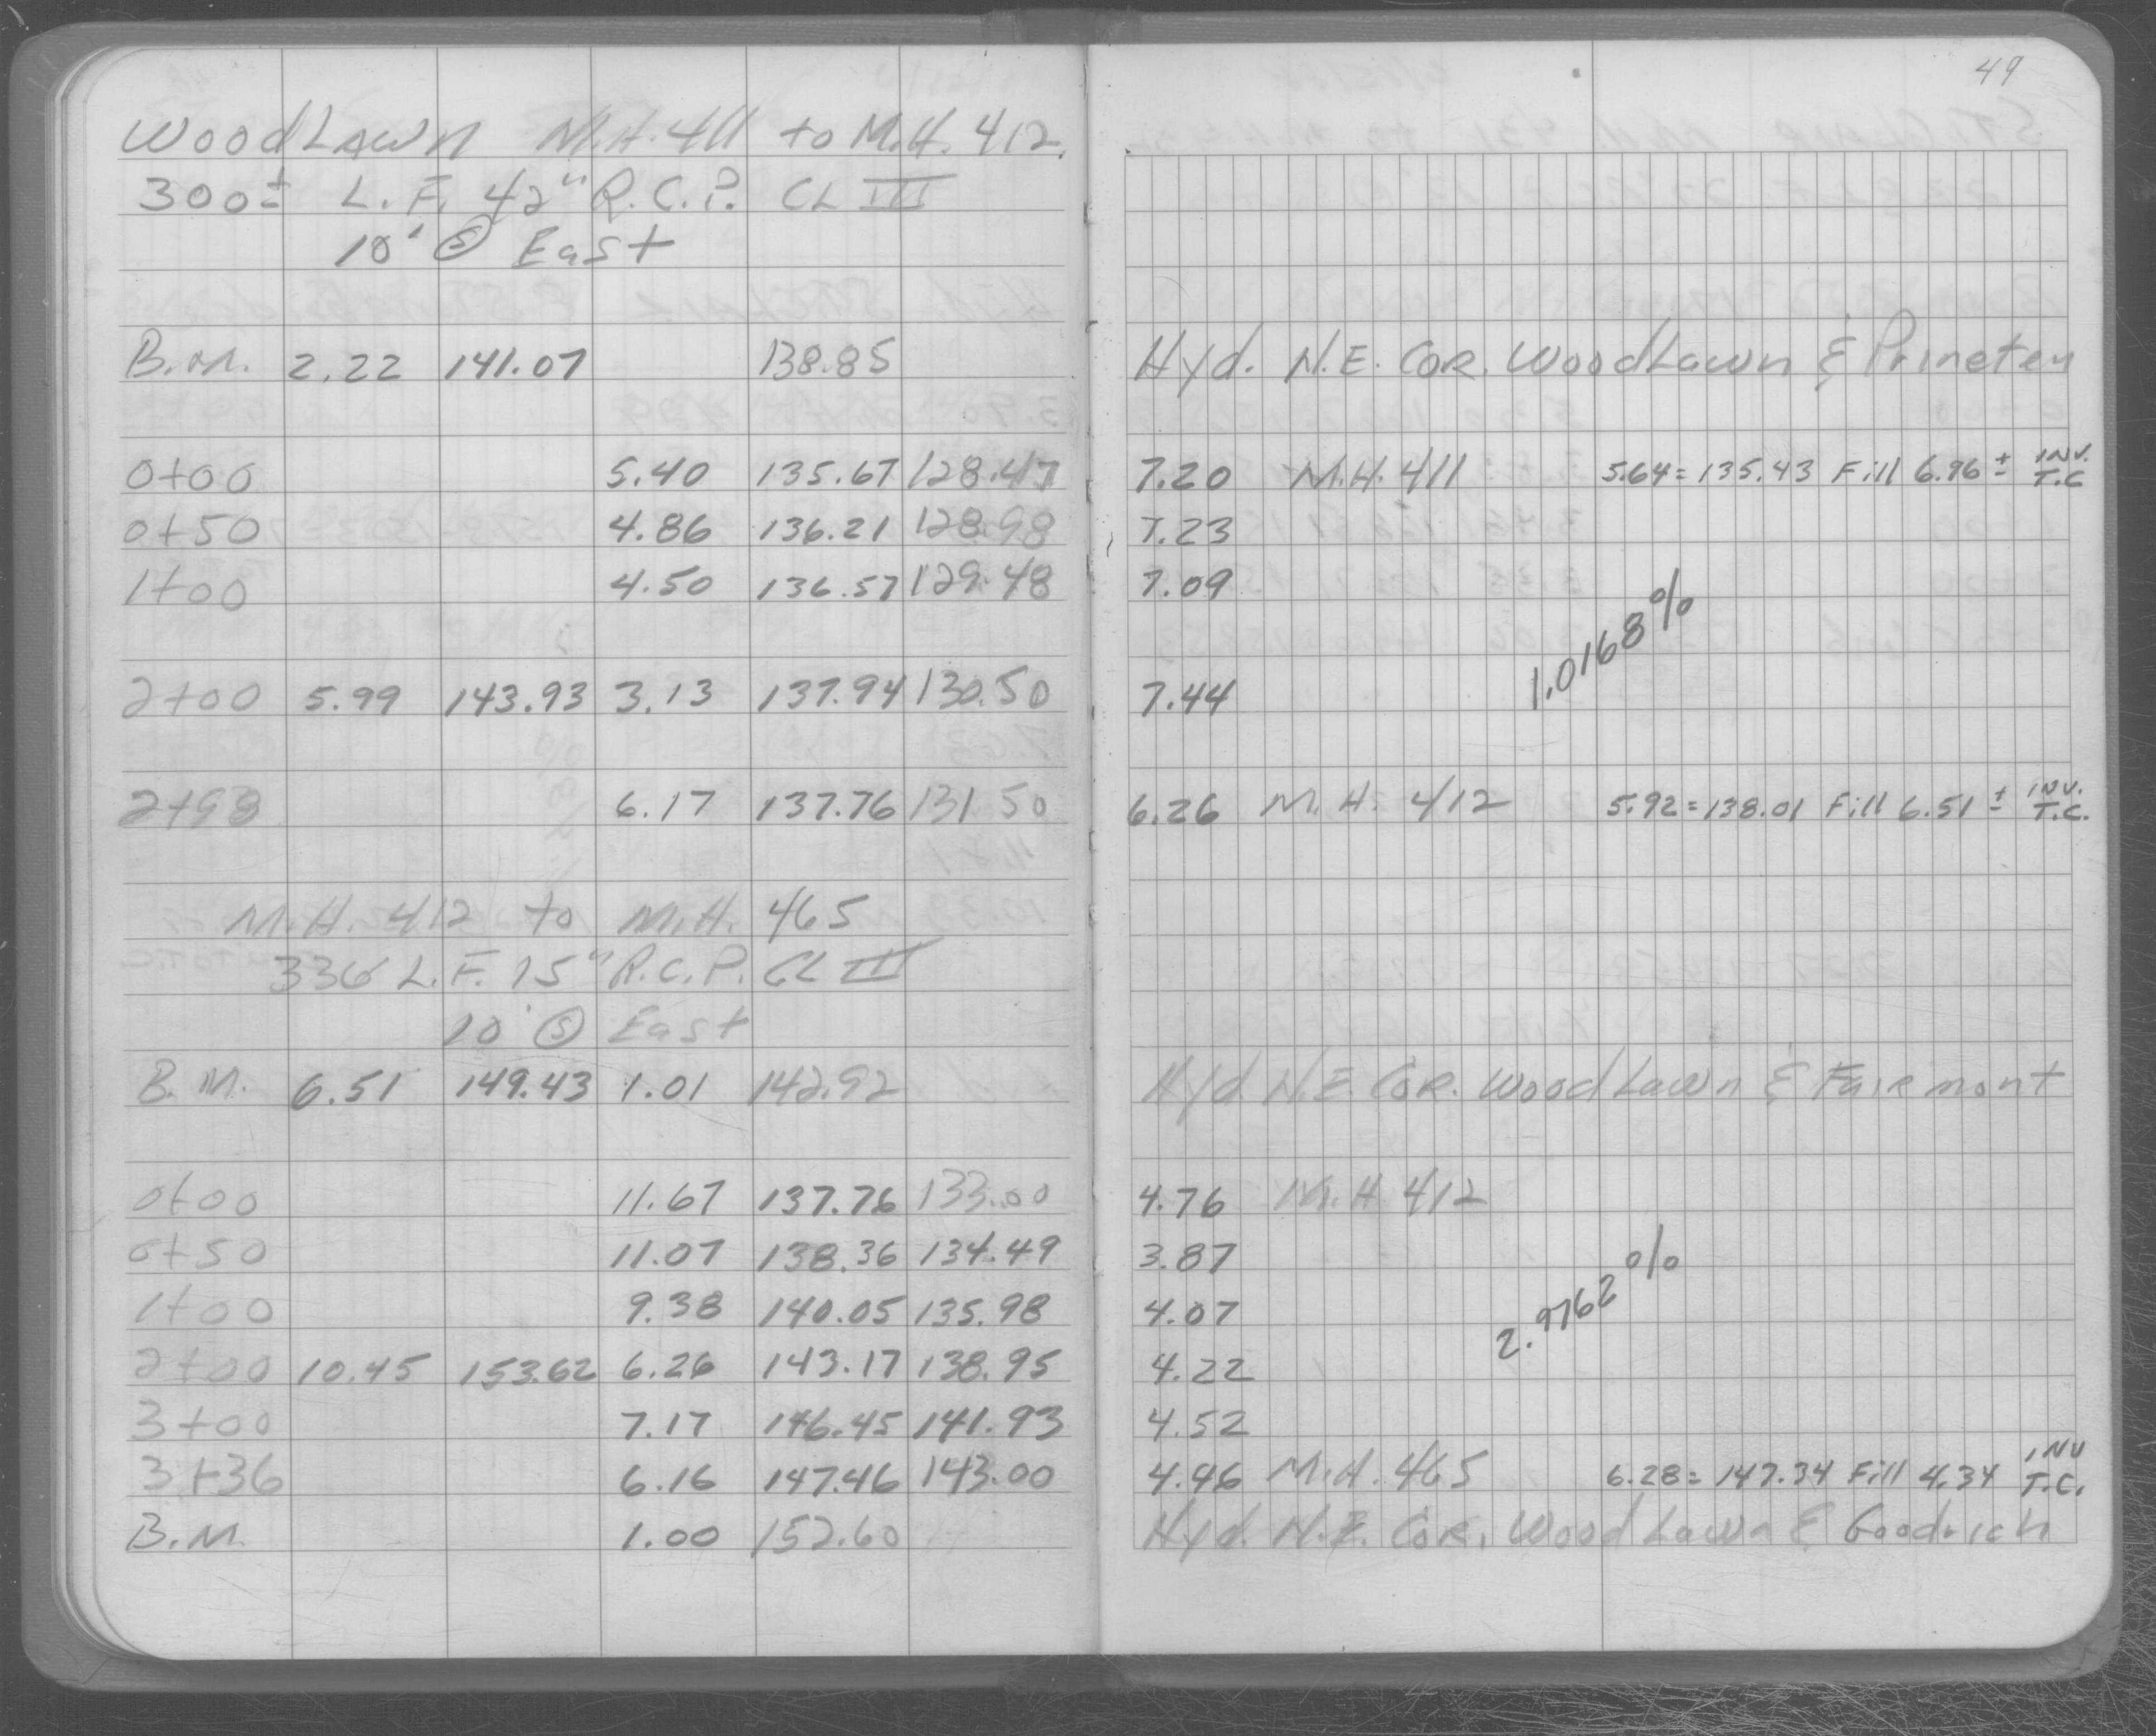 49
WoodLawn M.H. 411 to M.H. 412.
300± L.F. 42" R.C.P. CL III
10' Ⓢ East
B.M. 2.22 141.07 138.85 Hyd. N.E. COR. WoodLawn & Princeten
0+00 5.40 135.67 128.47 7.20 M.H. 411 5.64=135.43 Fill 6.96± INV. T.C
0+50 4.86 136.21 128.98 7.23
1+00 4.50 136.57 129.48 7.09
1.0168%
2+00 5.99 143.93 3.13 137.94 130.50 7.44
2+98 6.17 137.76 131.50 6.26 M.H. 412 5.92=138.01 Fill 6.51± INV. T.C.
M.H. 412 to M.H. 465
336 L.F. 15" R.C.P. CL III
10' Ⓢ East
B.M. 6.51 149.43 1.01 142.92 Hyd N.E. COR. WoodLawn & Fairmont
0+00 11.67 137.76 133.00 4.76 M.H 412
0+50 11.07 138.36 134.49 3.87
1+00 9.38 140.05 135.98 4.07
2.9762%
2+00 10.45 153.62 6.26 143.17 138.95 4.22
3+00 7.17 146.45 141.93 4.52
3+36 6.16 147.46 143.00 4.46 M.H. 465 6.28=147.34 Fill 4.34 INV T.C.
B.M. 1.00 152.60 Hyd. N.E. COR. WoodLawn & Goodrich